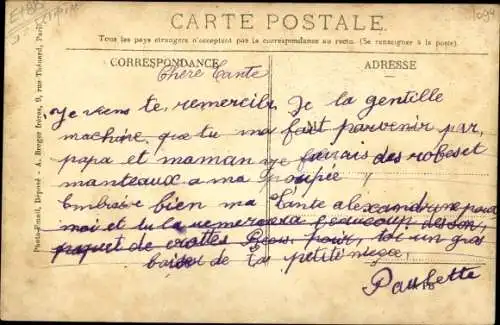 CARTE POSTALE
Tous les pays étrangers n'acceptent pas la correspondance au recto. (Se renseigner à la poste).
CORRESPONDANCE
ADRESSE
Chère Tante
Je viens te remercier de la gentille
machine que tu ma fait parvenir par
papa et maman je ferais des robes et
manteaux a ma poupée
Embrasse bien ma Tante alexandrine pour
moi et tu la remercera beaucoup de son
paquet de crottes pour toi un gros
baiser de ta petite nièce
Paulette
Photo-Email, Déposé - A. Breger frères, 9, rue Thénard, Paris